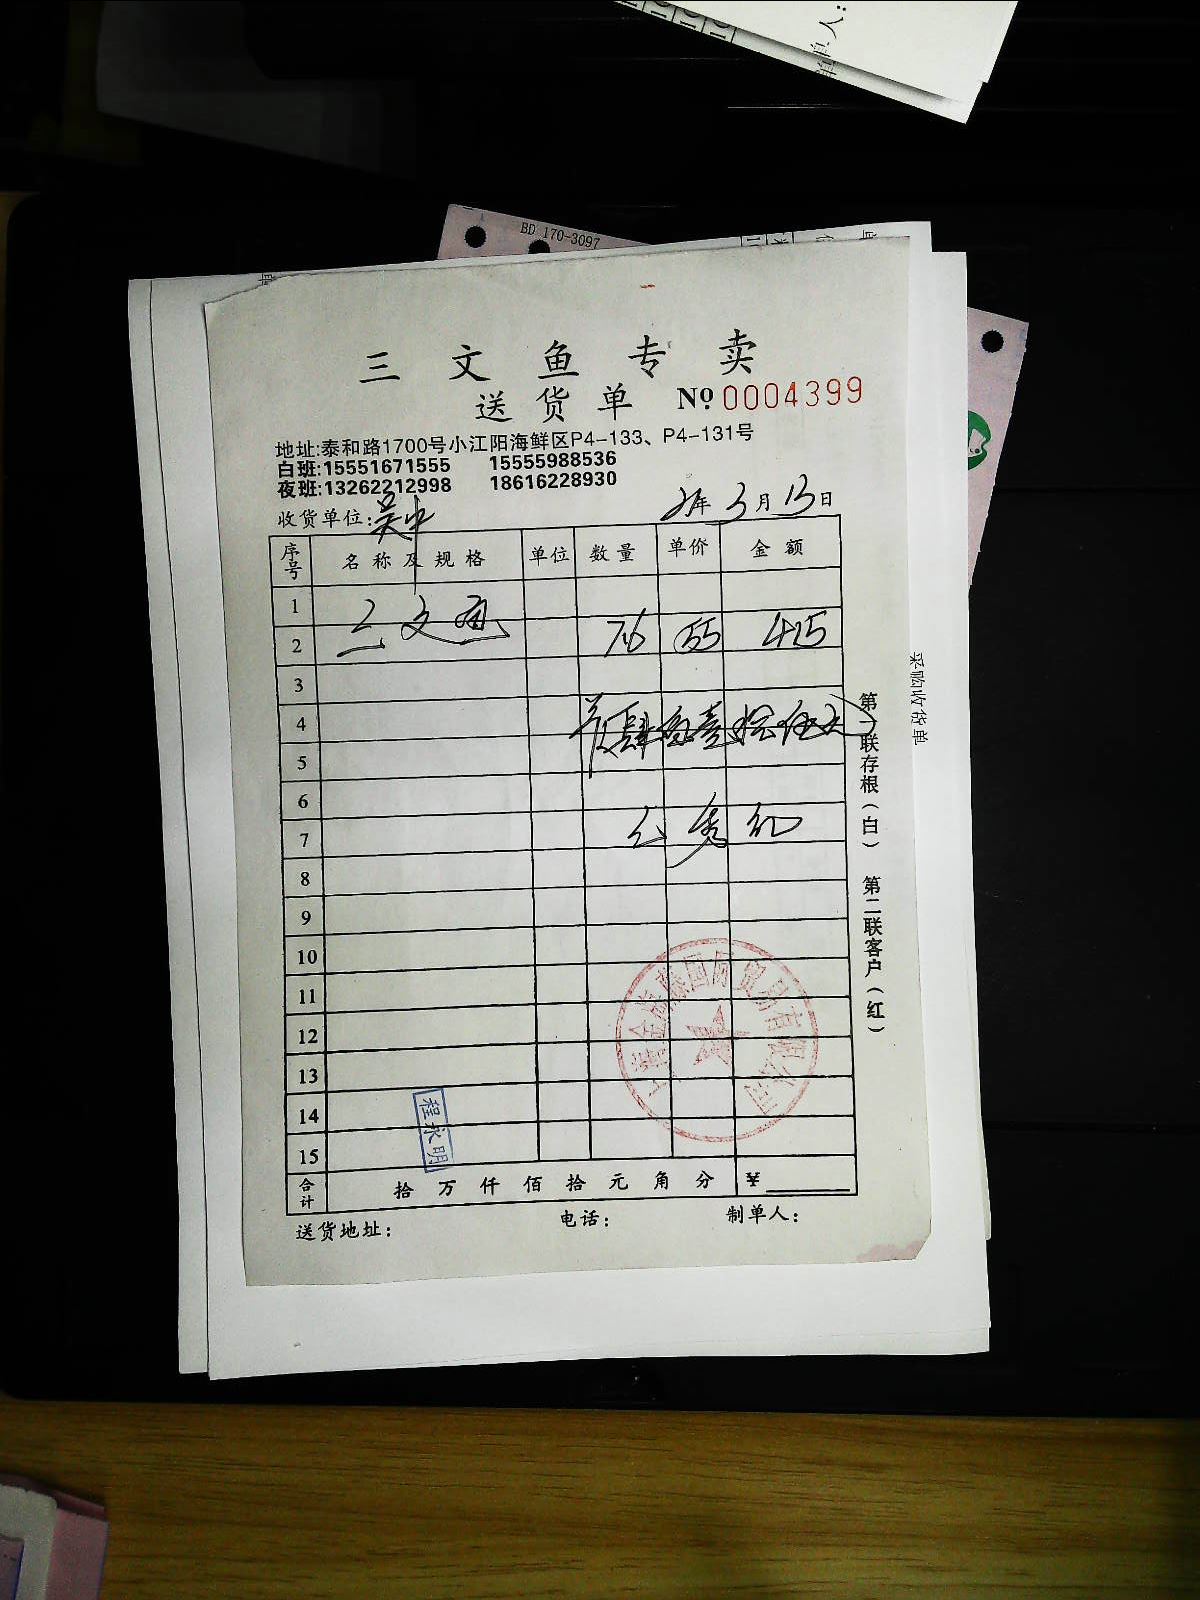 单人:
BD 170-3097
三文鱼专卖
送货单 № 0004399
地址:泰和路1700号小江阳海鲜区P4-133、P4-131号
白班:15551671555 15555988536
夜班:13262212998 18616228930
收货单位:吴中 21年3月13日
序号 名称及规格 单位 数量 单价 金额
1
2 三文鱼 76 55 415
3
4
肆佰壹拾伍元
5
6
7
8
9
10
11
12
13
14
15
合计 拾万仟佰拾元角分 ¥
送货地址: 电话: 制单人:
第一联存根(白) 第二联客户(红)
采购收货单
国际贸易有限公司
程永明